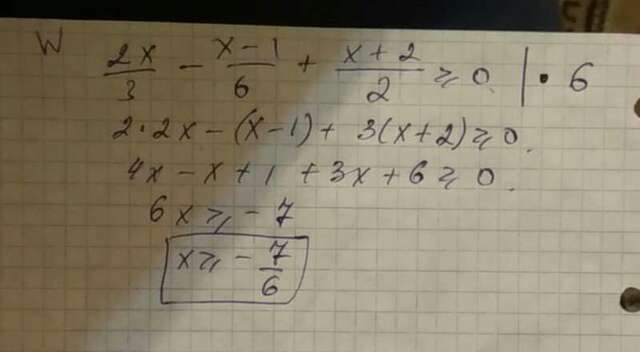 W
2x/3 - x-1/6 + x+2/2 ⩾ 0 | · 6
2·2x - (x-1) + 3(x+2) ⩾ 0.
4x - x + 1 + 3x + 6 ⩾ 0.
6x ⩾ - 7
x ⩾ - 7/6